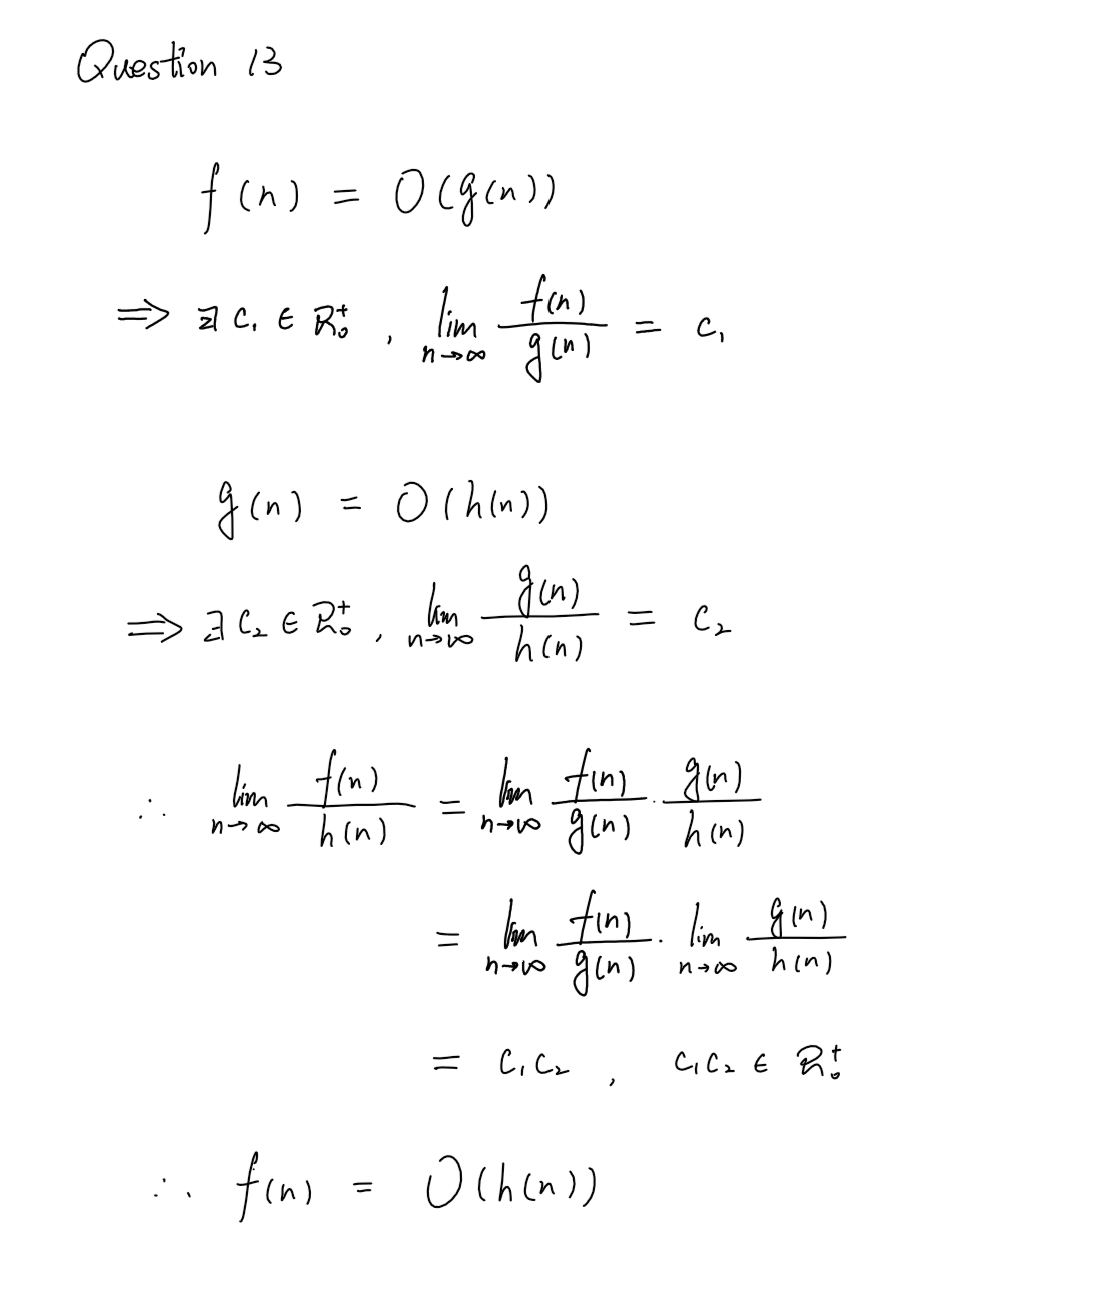 Question 13
f(n) = O(g(n))
⇒ ∃ c₁ ∈ ℝ₀⁺ , lim_{n→∞} f(n)/g(n) = c₁
g(n) = O(h(n))
⇒ ∃ c₂ ∈ ℝ₀⁺ , lim_{n→∞} g(n)/h(n) = c₂
∴ lim_{n→∞} f(n)/h(n) = lim_{n→∞} f(n)/g(n) · g(n)/h(n)
= lim_{n→∞} f(n)/g(n) · lim_{n→∞} g(n)/h(n)
= c₁c₂ , c₁c₂ ∈ ℝ₀⁺
∴ f(n) = O(h(n))